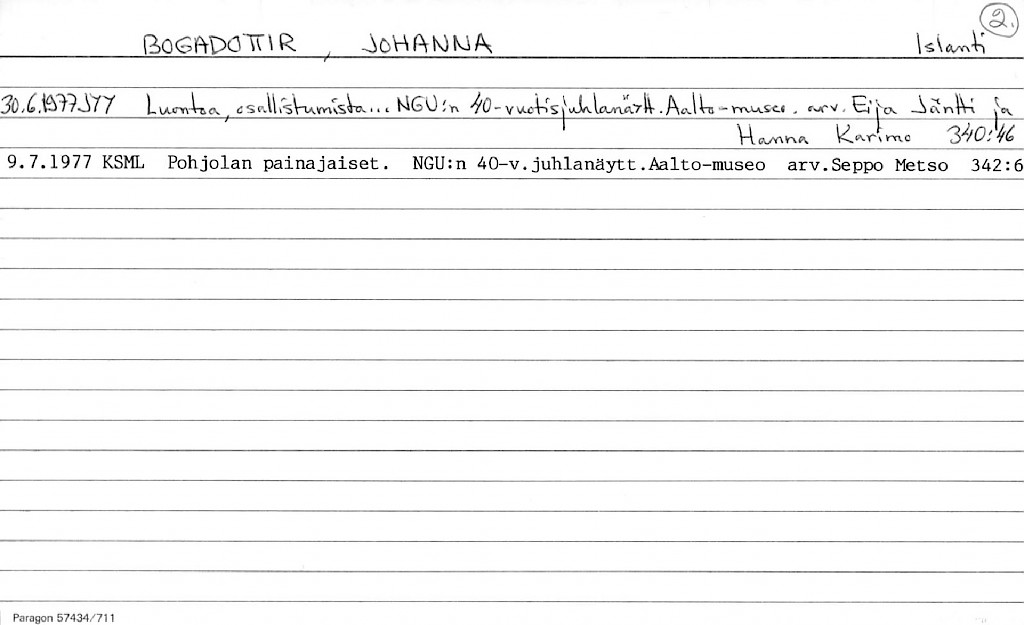 2.
BOGADOTTIR, JOHANNA Islanti
30.6.1977 JYY Luontoa, osallistumista... NGU:n 40-vuotisjuhlanäytt. Aalto-museo. arv. Eija Jäntti ja
Hanna Karimo 340:46
9.7.1977 KSML Pohjolan painajaiset. NGU:n 40-v.juhlanäytt.Aalto-museo arv.Seppo Metso 342:6
Paragon 57434/711